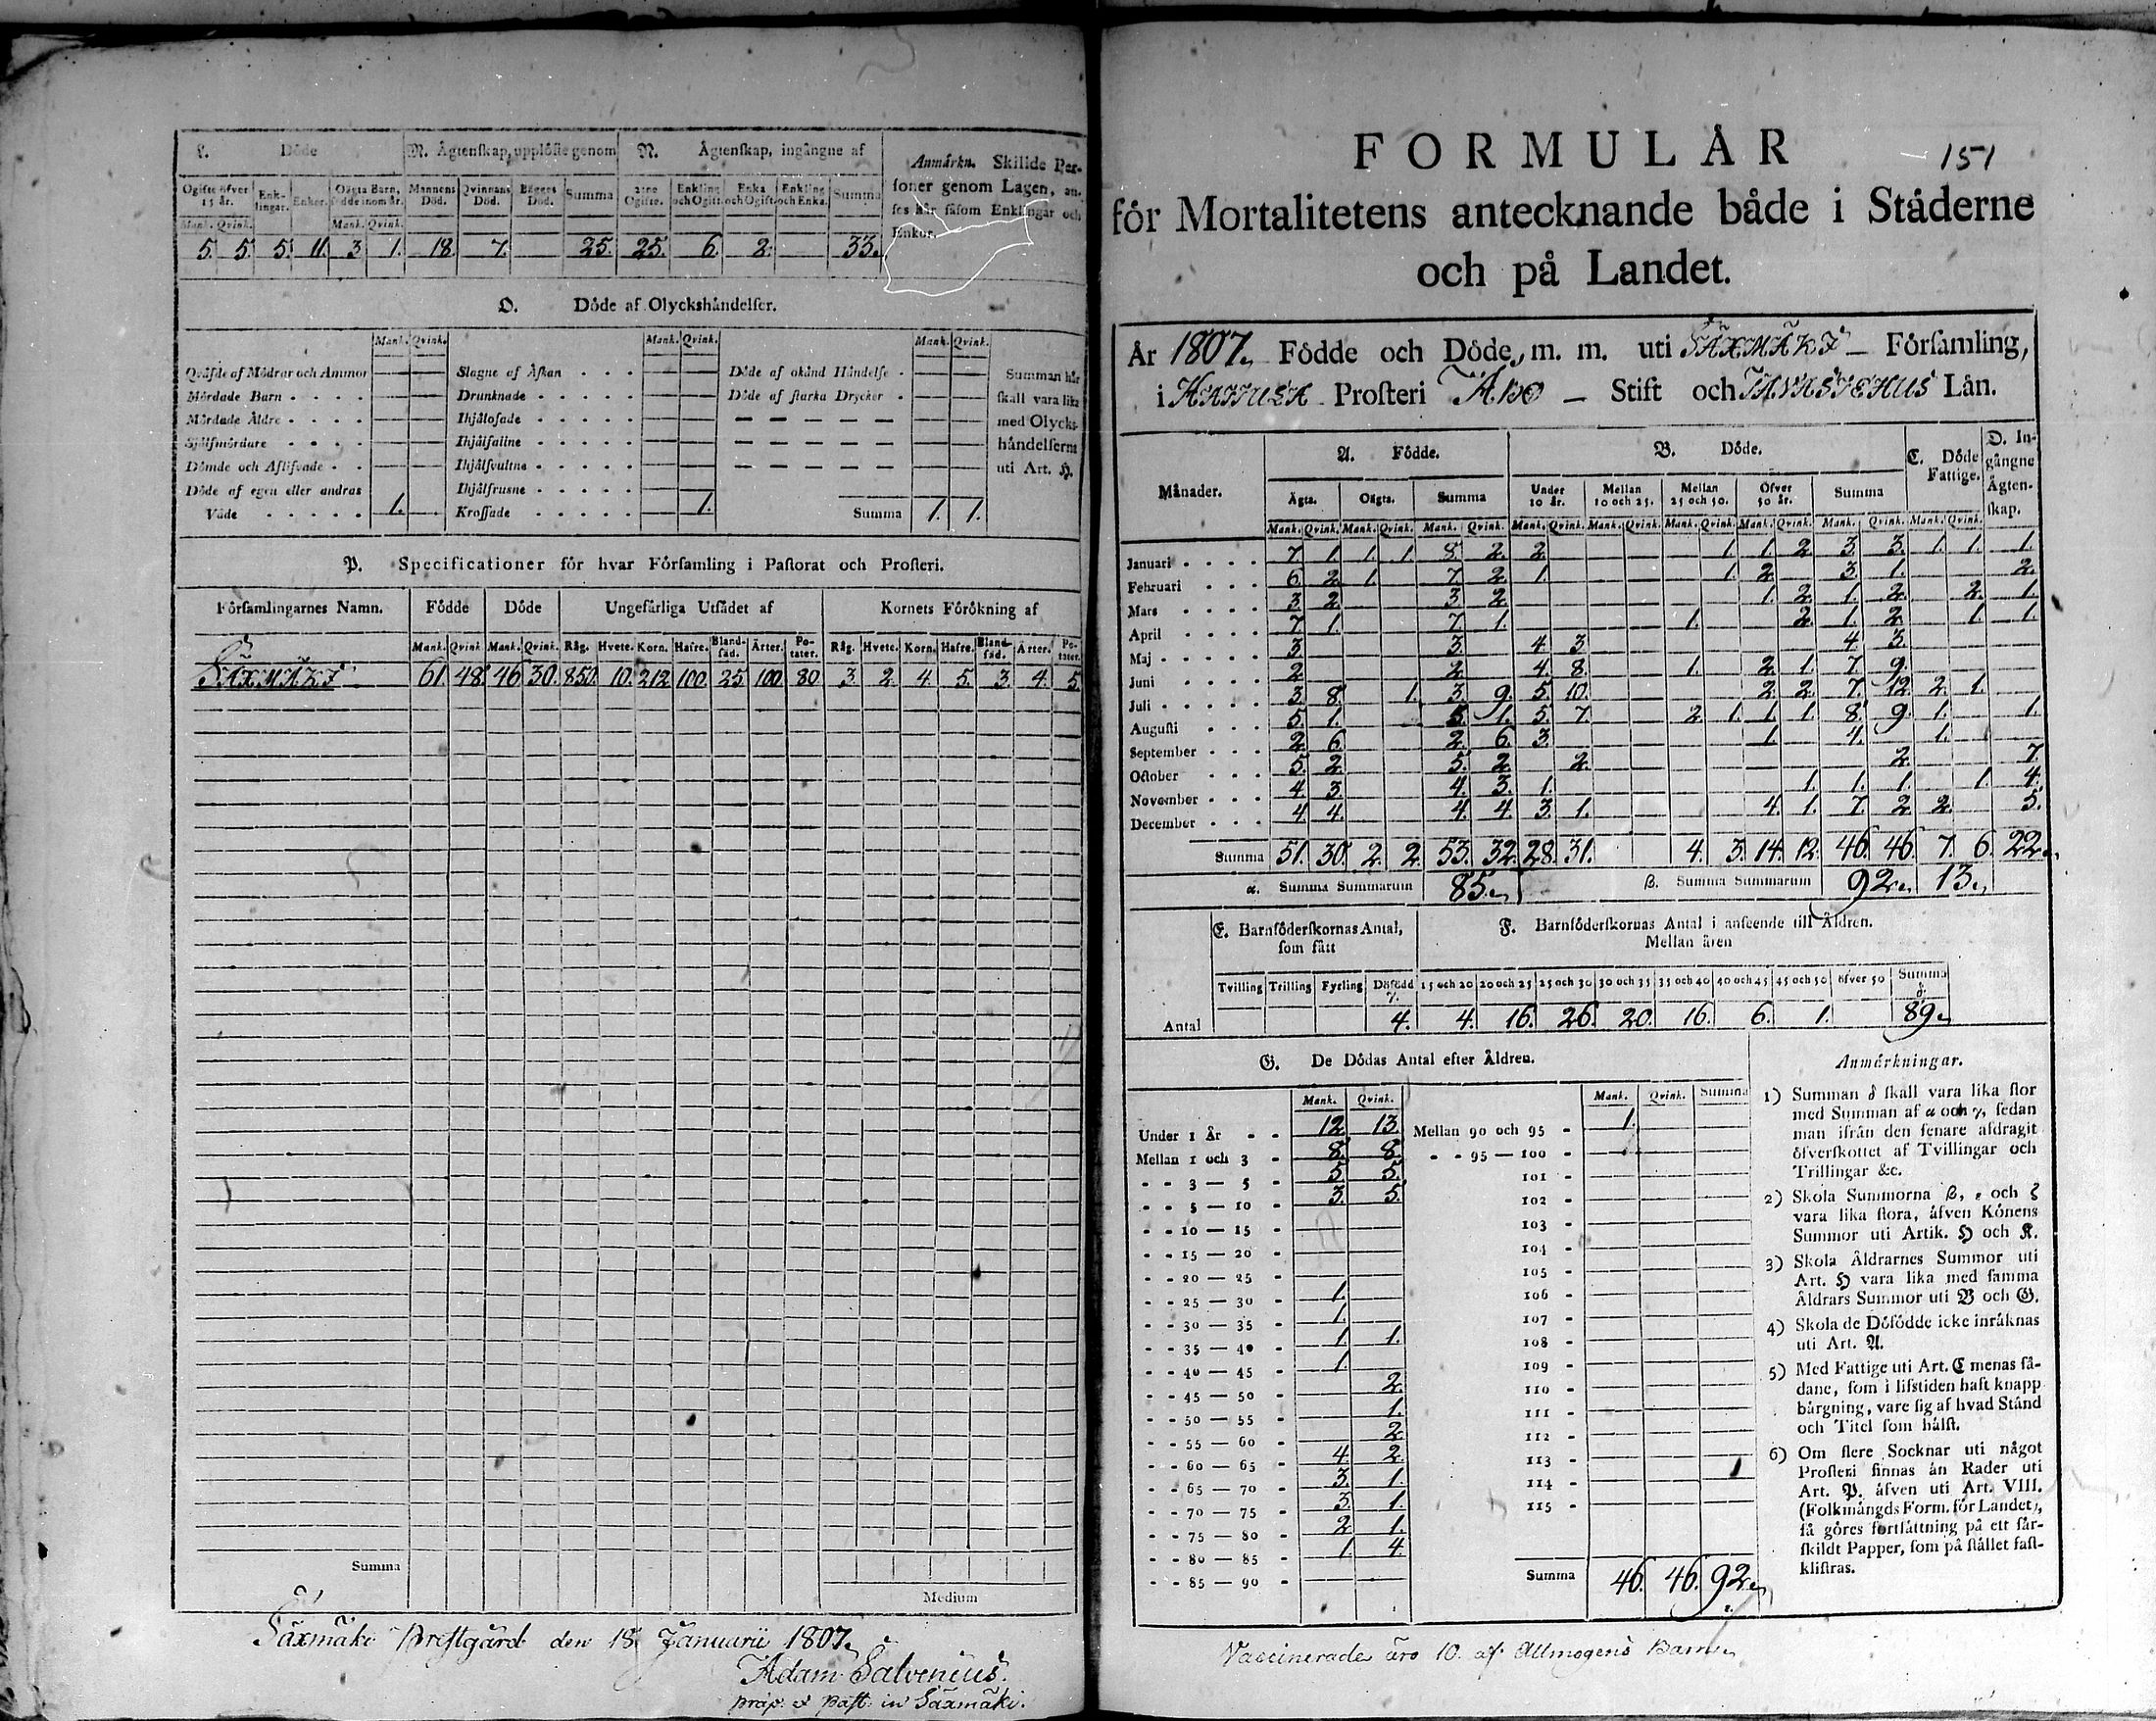 L. Döde M. Ägtenskap, upplöste genom N. Ägtenskap, ingångne af Anmärkn. Skilde Per-
soner genom Lagen, an-
ses här såsom Enklingar och
Enkor.
Ogifte öfver 15 år. Enk-lingar. Enkor. Oägta Barn, födde inom år. Mannens Död. Qvinnans Död. Bägges Död. Summa 2:ne Ogifte. Enkling och Ogift. Enka och Ogift. Enkling och Enka. Summa
Mank. Qvink. Mank. Qvink.
5. 5. 5. 11. 3 1. 18. 7. 25. 25. 6. 2. 33.
O. Döde af Olyckshändelser.
Mank. Qvink. Mank. Qvink. Mank. Qvink.
Qväfde af Mödrar och Ammor Slagne af Åskan Döde af okänd Händelse Summan här
Mördade Barn Drunknade Döde af starka Drycker skall vara lika
Mördade Äldre Ihjälosade med Olycks-
Självmördare Ihjälfallne händelserne
Dömde och Aflifvade Ihjälsvultne uti Art. H.
Döde af egen eller andras Ihjälfrusne
Våde 1. Krossade 1. Summa 1. 1.
P. Specificationer för hvar Församling i Pastorat och Prosteri.
Församlingarnes Namn. Födde Döde Ungefärliga Utsädet af Kornets Förökning af
Mank. Qvink Mank. Qvink. Råg. Hvete. Korn. Hafre. Bland-säd. Ärter. Po-tater. Råg. Hvete. Korn. Hafre. Bland-säd. Ärter. Po-tater.
SÄXMÄKI 61. 48. 46 30. 850. 10. 212 100. 25. 100. 80 3. 2. 4. 5. 3. 4. 5.
Summa
Medium
Säxmäki Prestgård den 18 Januarii 1807.
Adam Salvenius.
præp. et past. in Säxmäki.
FORMULÄR
151
för Mortalitetens antecknande både i Städerne
och på Landet.
År 1807. Födde och Döde, m. m. uti SÄXMÄKI Församling,
i Prosteri ÅBO Stift och TAVASTEHUS Län.
Månader. A. Födde. B. Döde. C. Döde Fattige. D. In-gångne Ägten-skap.
Ägta. Oägta. Summa Under 10 år. Mellan 10 och 25. Mellan 25 och 50. Öfver 50 år. Summa
Mank. Qvink. Mank. Qvink. Mank. Qvink. Mank. Qvink. Mank. Qvink. Mank. Qvink. Mank. Qvink. Mank. Qvink. Mank. Qvink.
Januari 7. 1. 1. 1. 8. 2. 2. 1. 1. 2 3. 3. 1. 1. 1.
Februari 6. 2. 1. 7. 2. 1. 1. 2. 3. 1. 2.
Mars 3. 2. 3. 2. 1. 2. 1. 2. 2. 1.
April 7. 1. 7. 1. 1. 2. 1. 2. 1. 1.
Maj 3. 3. 4. 3. 4. 3.
Juni 2. 2. 4. 8. 1. 2. 1. 7. 9.
Juli 3. 8. 1. 3. 9. 5. 10. 2. 2. 7. 12. 2. 1.
Augusti 5. 1. 5. 1. 5. 7. 2. 1. 1. 1. 8. 9. 1. 1.
September 2. 6. 2. 6. 3. 1. 4. 1.
October 5. 2. 5. 2. 2. 2. 7.
November 4. 3. 4. 3. 1. 1. 1. 1. 1. 4.
December 4. 4. 4. 4. 3. 1. 4. 1. 7. 2. 2. 5.
Summa 51. 30. 2. 2. 53. 32. 28. 31. 4. 3. 14. 12. 46. 46. 7. 6. 22.
α. Summa Summarum 85. β. Summa Summarum 92. 13.
E. Barnföderskornas Antal, som fått F. Barnföderskornas Antal i anseende till Åldren.
Mellan åren
Tvilling Trilling Fyrling Dödfödd γ. 15 och 20 20 och 25 25 och 30 30 och 35 35 och 40 40 och 45 45 och 50 öfver 50 Summa δ.
Antal 4. 4. 16. 26. 20. 16. 6. 1. 89.
G. De Dödas Antal efter Åldren.
Mank. Qvink. Mank. Qvink. Summa
Under 1 År 12 13. Mellan 90 och 95 1.
Mellan 1 och 3 8. 8. 95 — 100
3 — 5 5. 5. 101
5 — 10 3. 5. 102
10 — 15 103
15 — 20 104
20 — 25 105
25 — 30 1. 106
30 — 35 1. 107
35 — 40 1 1. 108
40 — 45 1. 109
45 — 50 2. 110
50 — 55 1. 111
55 — 60 2. 112
60 — 65 4. 2. 113
65 — 70 3. 1. 114
70 — 75 3. 1. 115
75 — 80 2. 1.
80 — 85 1. 4.
85 — 90 Summa 46. 46. 92.
Anmärkningar.
1) Summan δ skall vara lika stor
med Summan af α och γ, sedan
man ifrån den senare afdragit
öfverskottet af Tvillingar och
Trillingar &c.
2) Skola Summorna β, ε och ζ
vara lika stora, äfven Könens
Summor uti Artik. H och K.
3) Skola Åldrarnes Summor uti
Art. H vara lika med samma
Åldrars Summor uti B och G.
4) Skola de Dödfödde icke inräknas
uti Art. A.
5) Med Fattige uti Art. C menas så-
dane, som i lifstiden haft knapp
bärgning, vare sig af hvad Stånd
och Titel som hälst.
6) Om flere Socknar uti något
Prosteri finnas än Rader uti
Art. P. äfven uti Art. VIII.
(Folkmängds Form. för Landet),
så göres fortsättning på ett sär-
skildt Papper, som på stället fast-
klistras.
Vaccinerade äro 10. af Allmogens Barn.